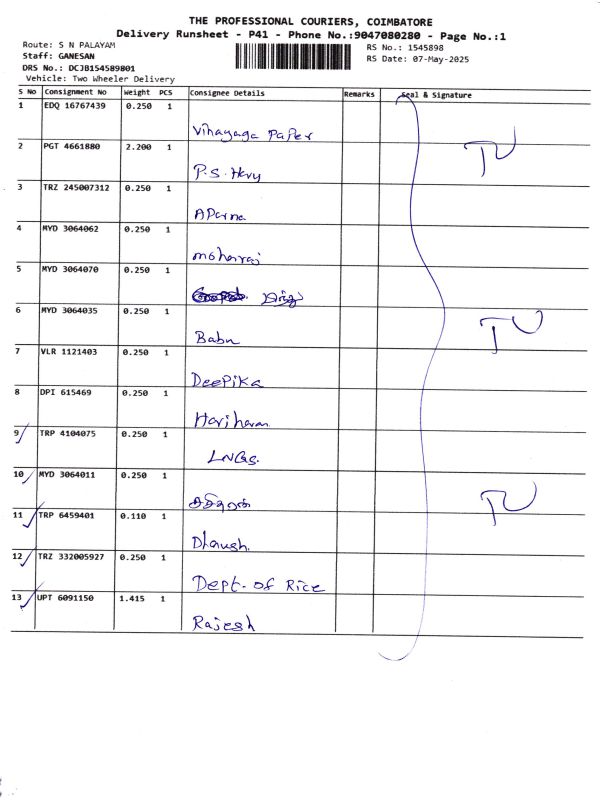 THE PROFESSIONAL COURIERS, COIMBATORE
Delivery Runsheet - P41 - Phone No.:9047080280 - Page No.:1
Route: S N PALAYAM
Staff: GANESAN
DRS No.: DCJB154589801
Vehicle: Two Wheeler Delivery
RS No.: 1545898
RS Date: 07-May-2025
S No Consignment No Weight PCS Consignee Details Remarks Seal & Signature
1 EDQ 16767439 0.250 1
Vihayaga Paper
2 PGT 4661880 2.200 1
P.S. Hary
3 TRZ 245007312 0.250 1
AParna
4 MYD 3064062 0.250 1
mohanraj
5 MYD 3064070 0.250 1
6 MYD 3064035 0.250 1
Babu
7 VLR 1121403 0.250 1
DeePika
8 DPI 615469 0.250 1
Hariharan
9 TRP 4104075 0.250 1
10 MYD 3064011 0.250 1
11 TRP 6459401 0.110 1
Dhanush.
12 TRZ 332005927 0.250 1
Dept. of Rice
13 UPT 6091150 1.415 1
Rajesh